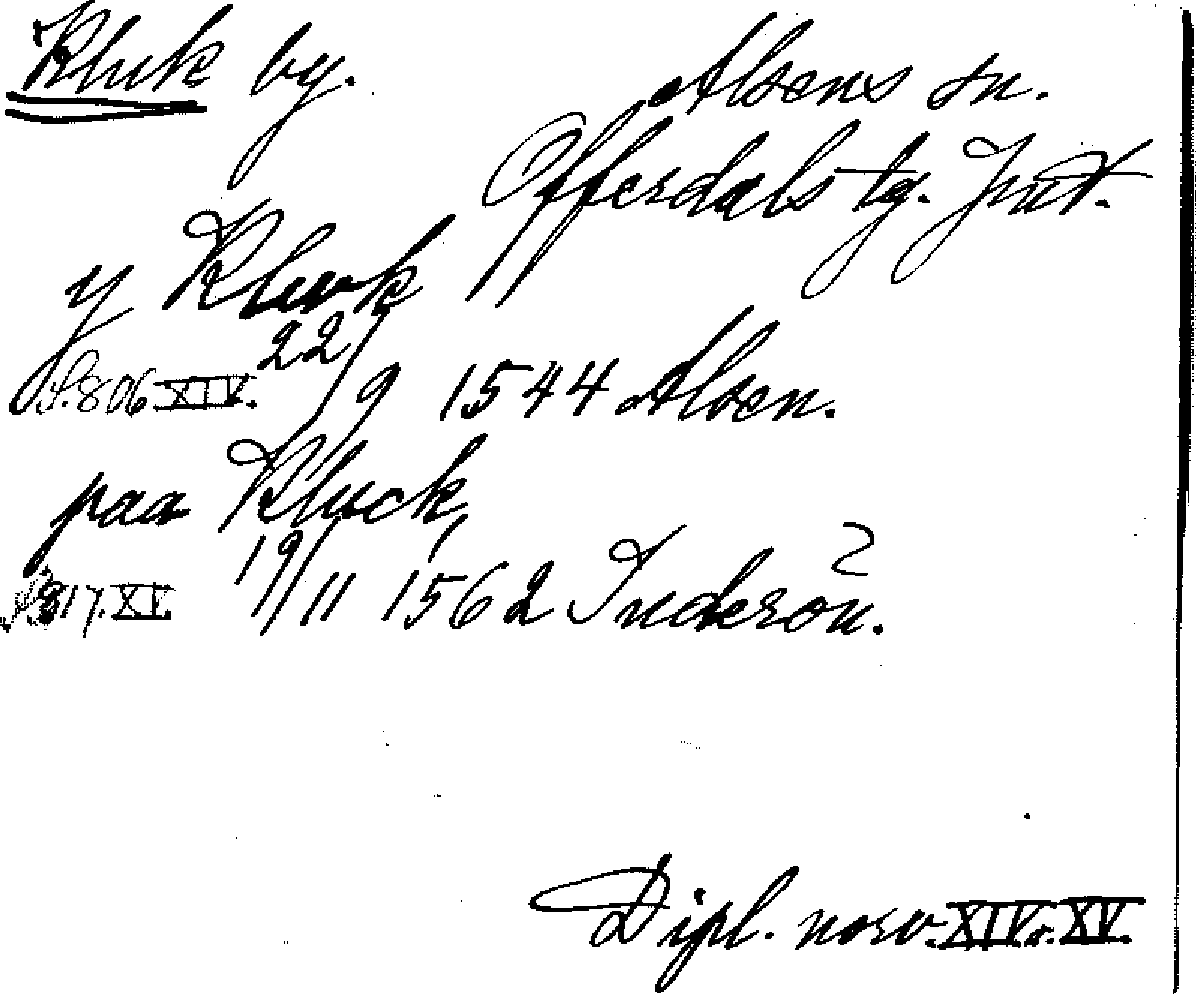 Kluk by. Alsens sn.
Offerdals tg. Jmt.
y Kluuk
S. 806 XIV. 22/9 1544 Alsen.
paa Kluck,
S 817. XV. 19/11 1562 Inderön. ?
Dipl. norv. XIV o. XV.